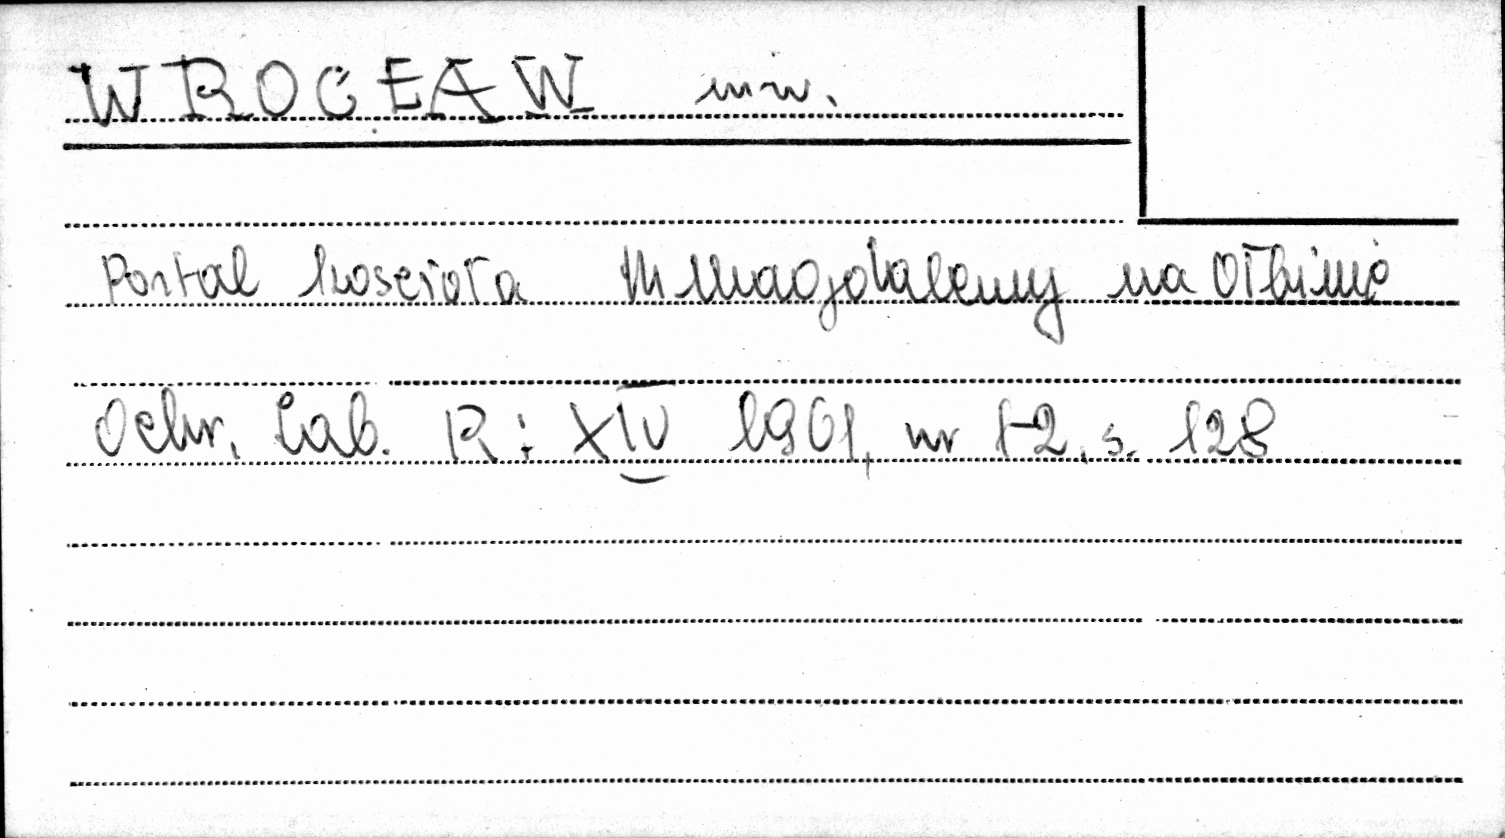 WROCŁAW miw.
Portal kościoła M Magdaleny na Ołbinie
Ochr. Zab. R: XIV 1961, nr 1-2, s. 128